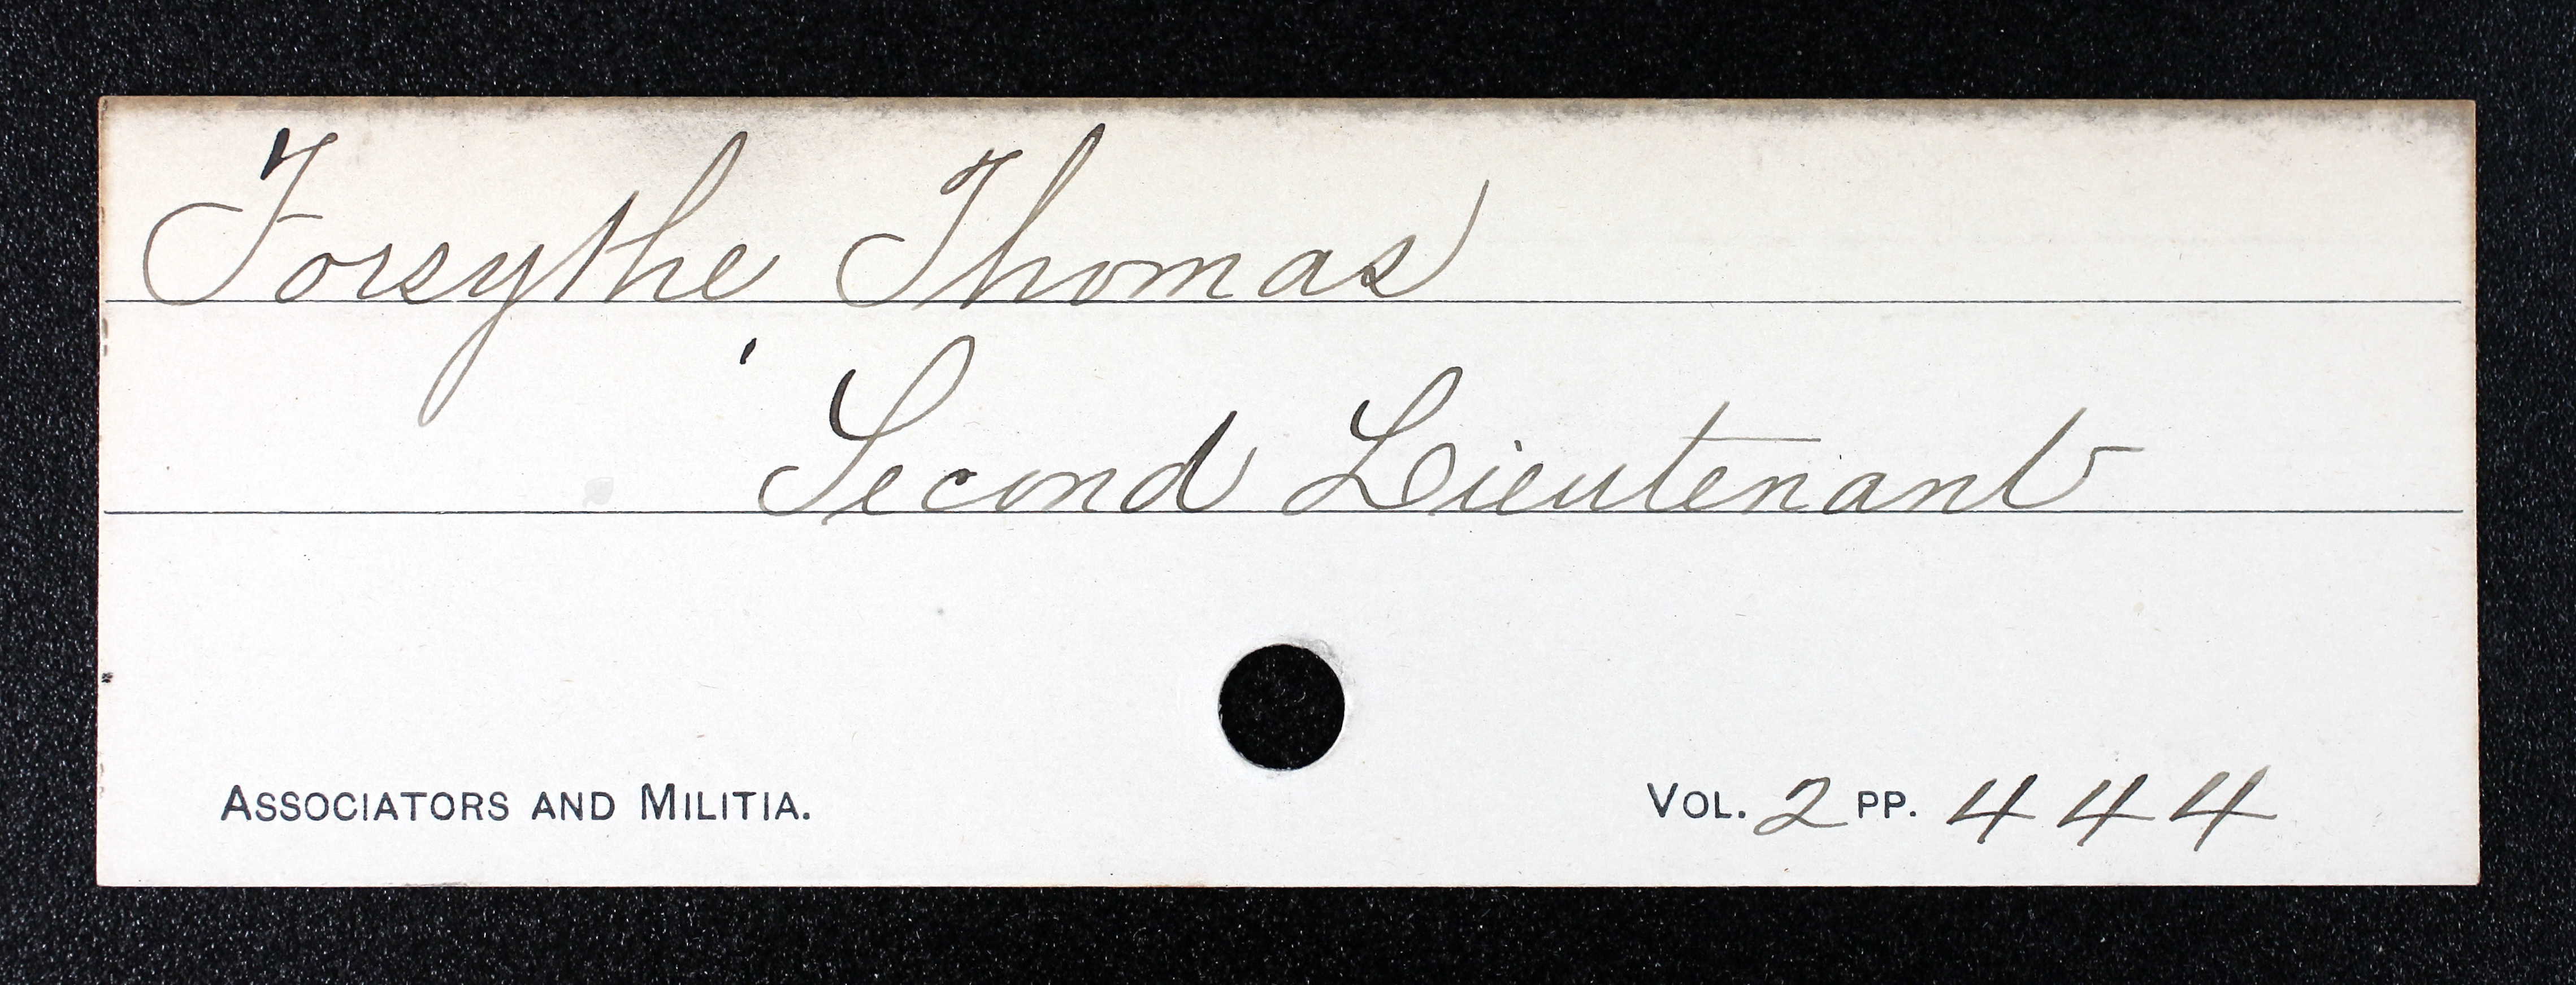 Forsythe Thomas
Second Lieutenant
ASSOCIATORS AND MILITIA. VOL. 2 PP. 444